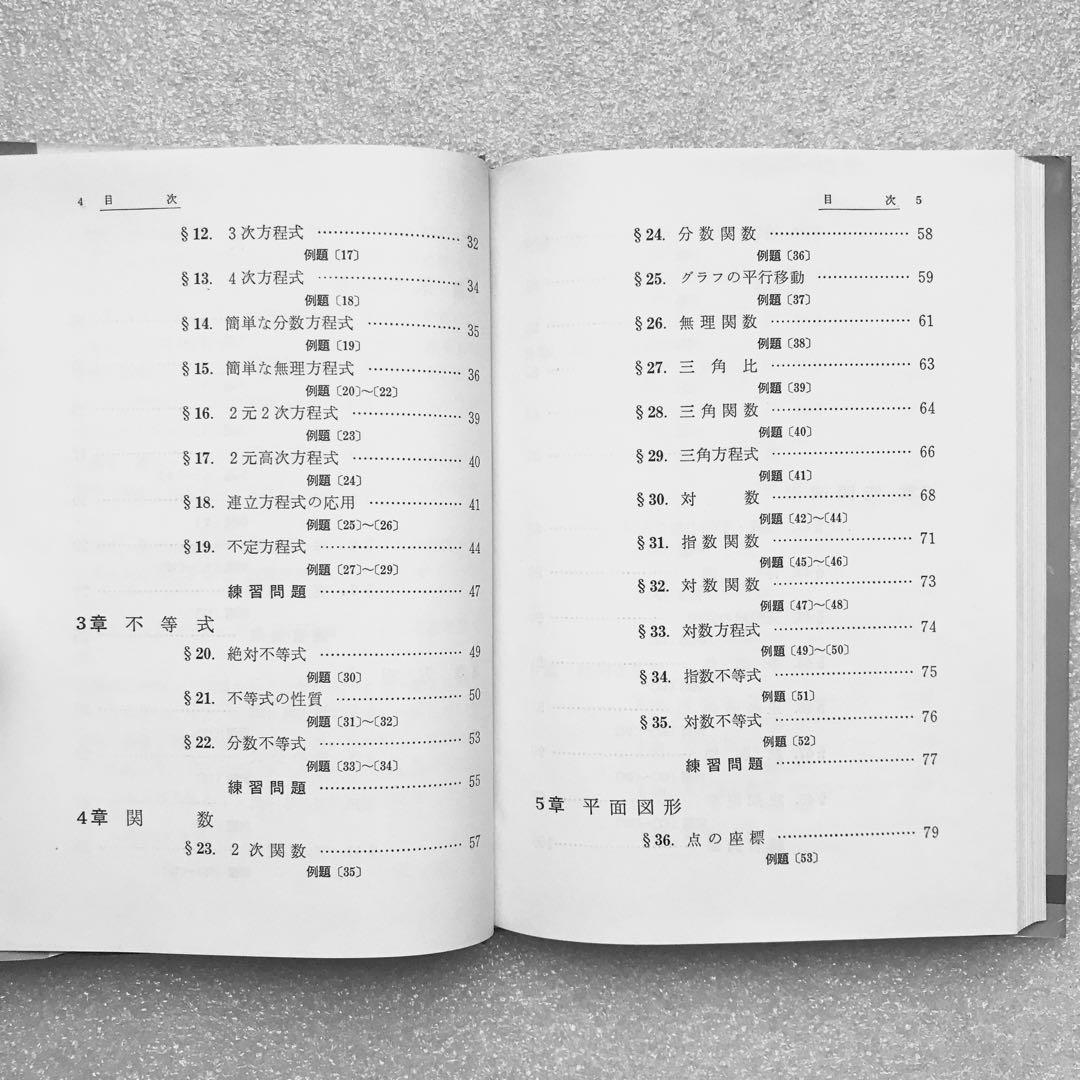 4 目 次
§12. 3次方程式 ………………………… 32
例題〔17〕
§13. 4次方程式 ………………………… 34
例題〔18〕
§14. 簡単な分数方程式 ……………… 35
例題〔19〕
§15. 簡単な無理方程式 ……………… 36
例題〔20〕～〔22〕
§16. 2元2次方程式 ………………… 39
例題〔23〕
§17. 2元高次方程式 ………………… 40
例題〔24〕
§18. 連立方程式の応用 ……………… 41
例題〔25〕～〔26〕
§19. 不定方程式 ……………………… 44
例題〔27〕～〔29〕
練習問題 ……………………… 47
3章 不等式
§20. 絶対不等式 ……………………… 49
例題〔30〕
§21. 不等式の性質 …………………… 50
例題〔31〕～〔32〕
§22. 分数不等式 ……………………… 53
例題〔33〕～〔34〕
練習問題 ……………………… 55
4章 関数
§23. 2次関数 ………………………… 57
例題〔35〕
目 次 5
§24. 分数関数 ………………………… 58
例題〔36〕
§25. グラフの平行移動 ……………… 59
例題〔37〕
§26. 無理関数 ………………………… 61
例題〔38〕
§27. 三角比 …………………………… 63
例題〔39〕
§28. 三角関数 ………………………… 64
例題〔40〕
§29. 三角方程式 ……………………… 66
例題〔41〕
§30. 対数 ……………………………… 68
例題〔42〕～〔44〕
§31. 指数関数 ………………………… 71
例題〔45〕～〔46〕
§32. 対数関数 ………………………… 73
例題〔47〕～〔48〕
§33. 対数方程式 ……………………… 74
例題〔49〕～〔50〕
§34. 指数不等式 ……………………… 75
例題〔51〕
§35. 対数不等式 ……………………… 76
例題〔52〕
練習問題 ……………………… 77
5章 平面図形
§36. 点の座標 ………………………… 79
例題〔53〕